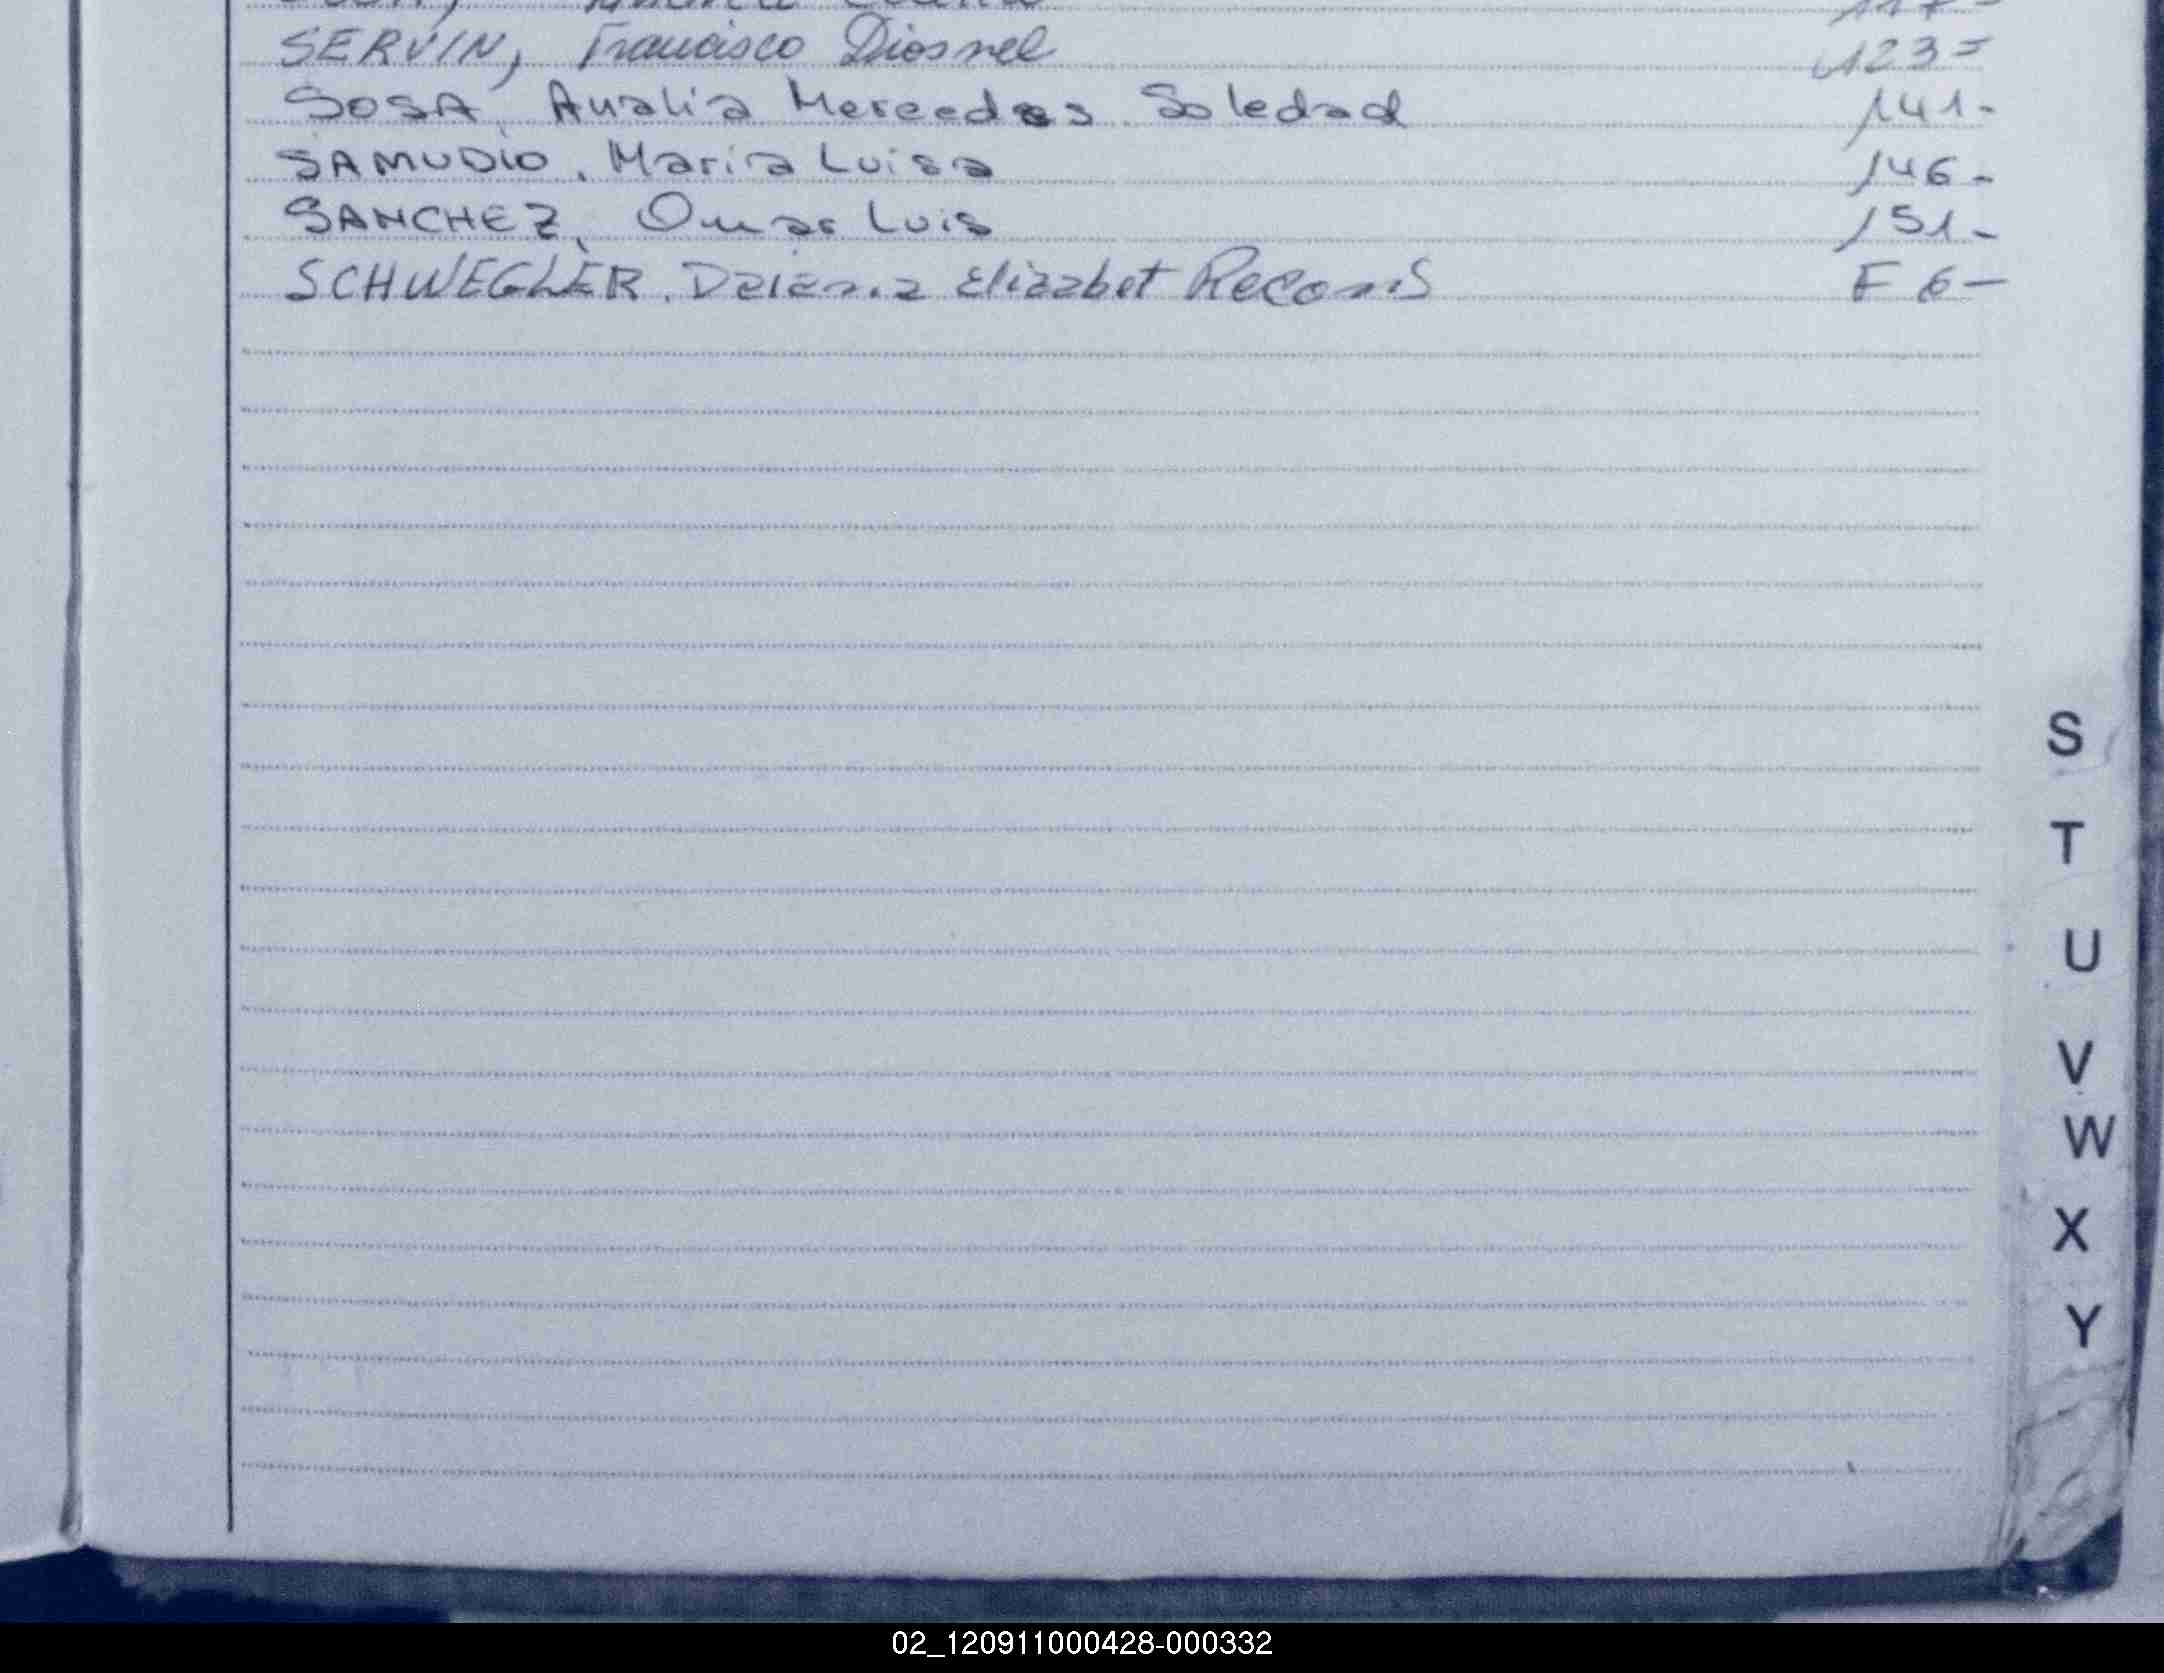 117-
SERVIN, Francisco Diosnel 123=
SOSA, Analia Mercedes Soledad 141-
SAMUDIO, Maria Luisa 146-
SANCHEZ, Omar Luis 151-
SCHWEGLER, Elizabet Recons F 6-
S
T
U
V
W
X
Y
02_120911000428-000332